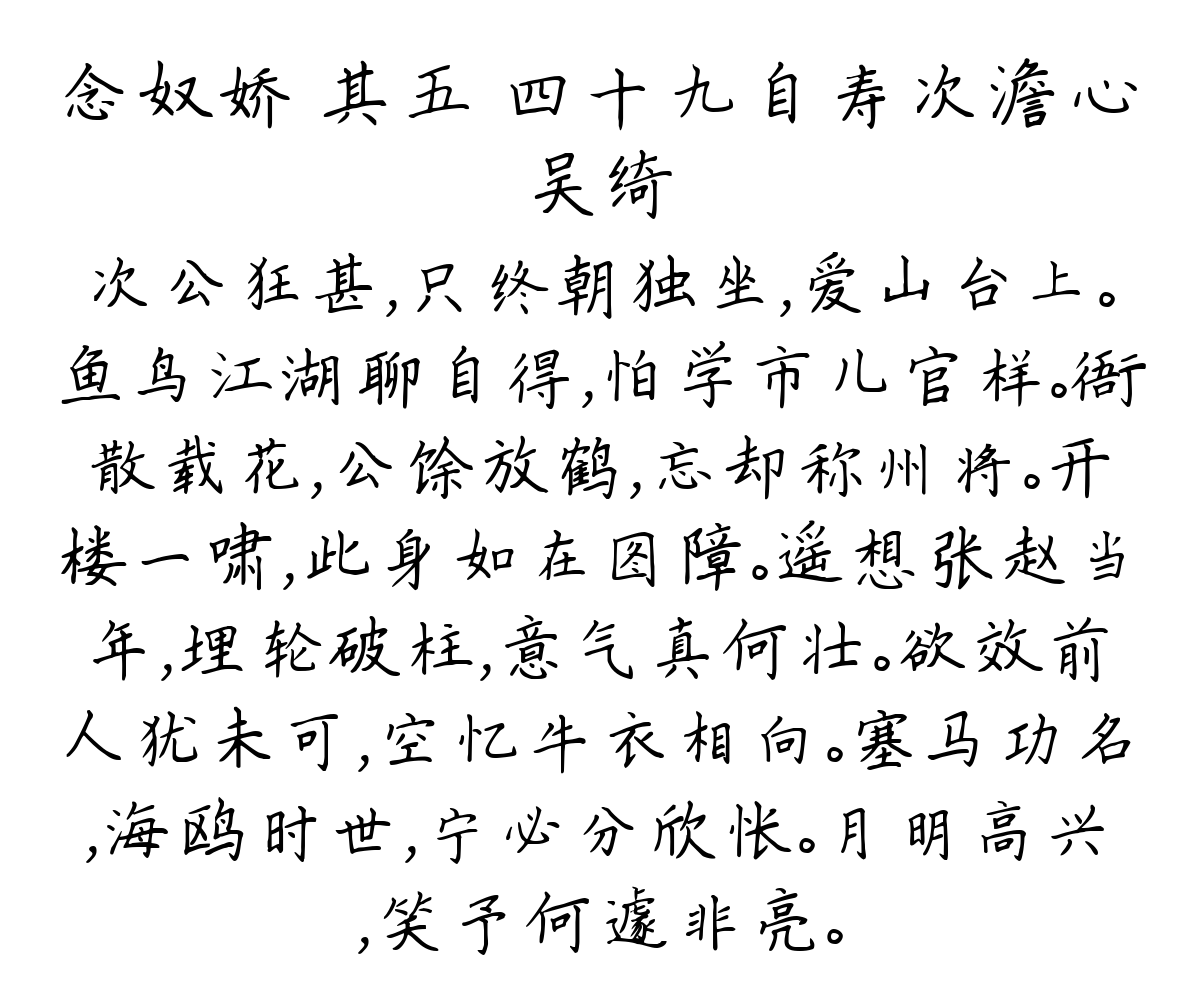 念奴娇 其五 四十九自寿次澹心
吴绮
次公狂甚,只终朝独坐,爱山台上。
鱼鸟江湖聊自得,怕学市儿官样。衙
散载花,公馀放鹤,忘却称州将。开
楼一啸,此身如在图障。遥想张赵当
年,埋轮破柱,意气真何壮。欲效前
人犹未可,空忆牛衣相向。塞马功名
,海鸥时世,宁必分欣怅。月明高兴
,笑予何遽非亮。